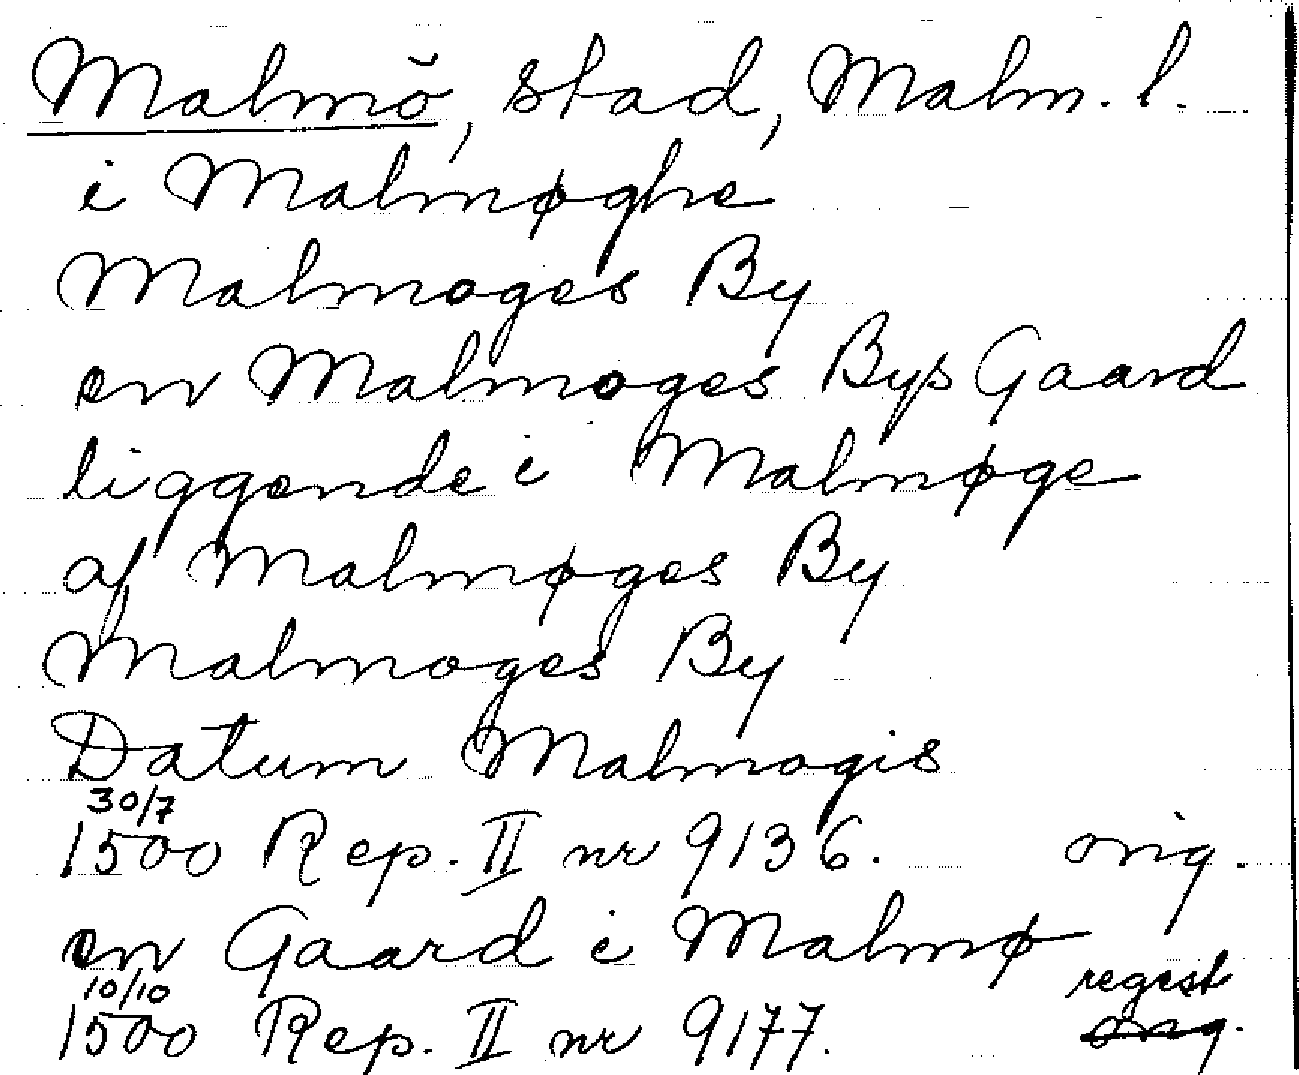 Malmö, stad, Malm. l.
i Malmøghe
Malmoges By
en Malmoges Bys Gaard
liggende i Malmøge
af Malmøges By
Malmoges By
Datum Malmogis
30/7
1500 Rep. II nr 9136. orig.
en Gaard i Malmø
10/10 regest
1500 Rep. II nr 9177. orig.